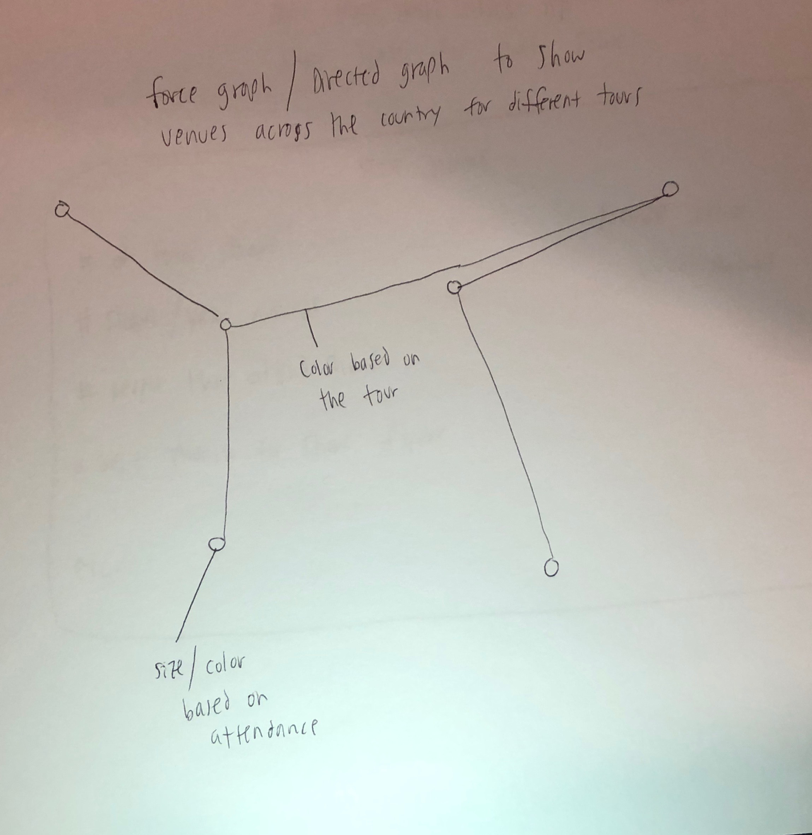 force graph / Directed graph to show
venues across the country for different tours
Color based on
the tour
size/color
based on
attendance